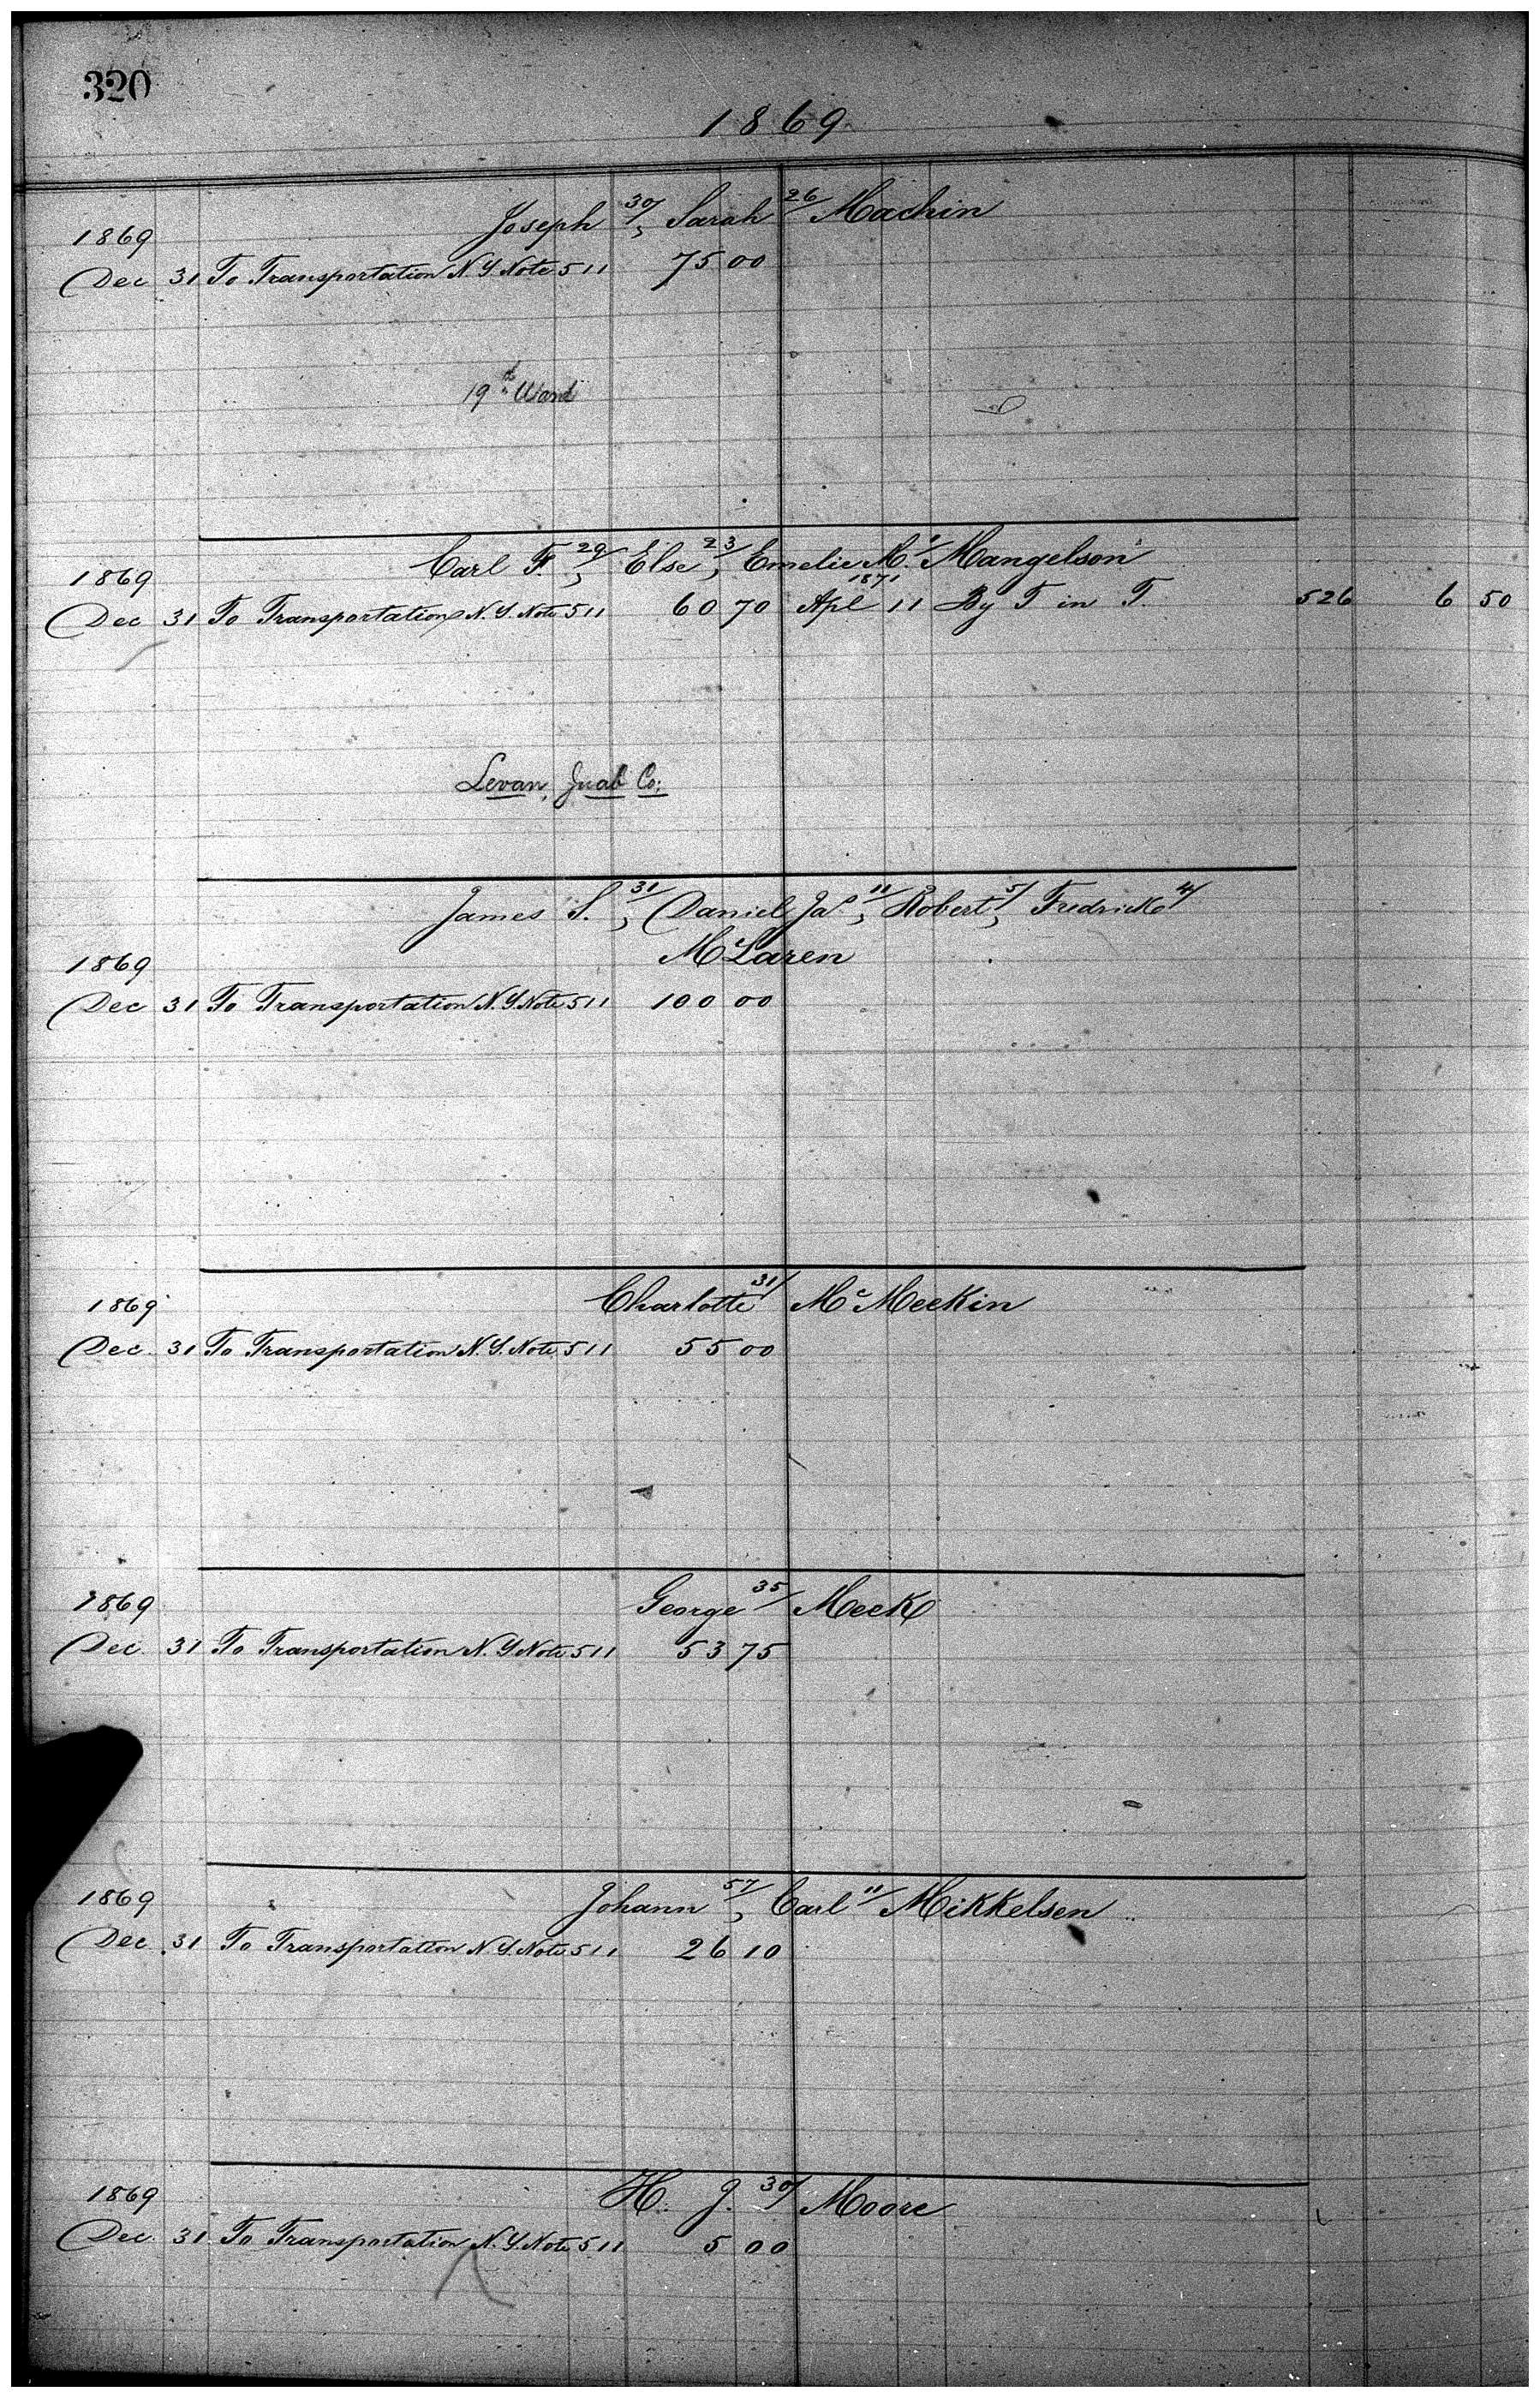 320
1869
Joseph 30/, Sarah 26/ Machin
1869
Dec 31 To Transportation N.Y. Note 511 75 00
19th Ward
Carl F. 29/, Else 23/, Emelie M. Mangelson
1869
Dec 31 To Transportation N.Y. Note 511 60 70 1871 Apl 11 By T in T. 526 6 50
Levan, Juab Co;
James S. 31/, Daniel Jas 11/, Robert 5/, Fredrick 4/
McLaren
1869
Dec 31 To Transportation N.Y. Note 511 100 00
Charlotte 31/ McMeekin
1869
Dec. 31 To Transportation N.Y. Note 511 55 00
George 35/ Meek
1869
Dec. 31 To Transportation N.Y. Note 511 53 75
Johann 57/, Carl 11/ Mikkelsen
1869
Dec. 31 To Transportation N.Y. Note 511 26 10
H. J. 30/ Moore
1869
Dec. 31 To Transportation N.Y. Note 511 5 00